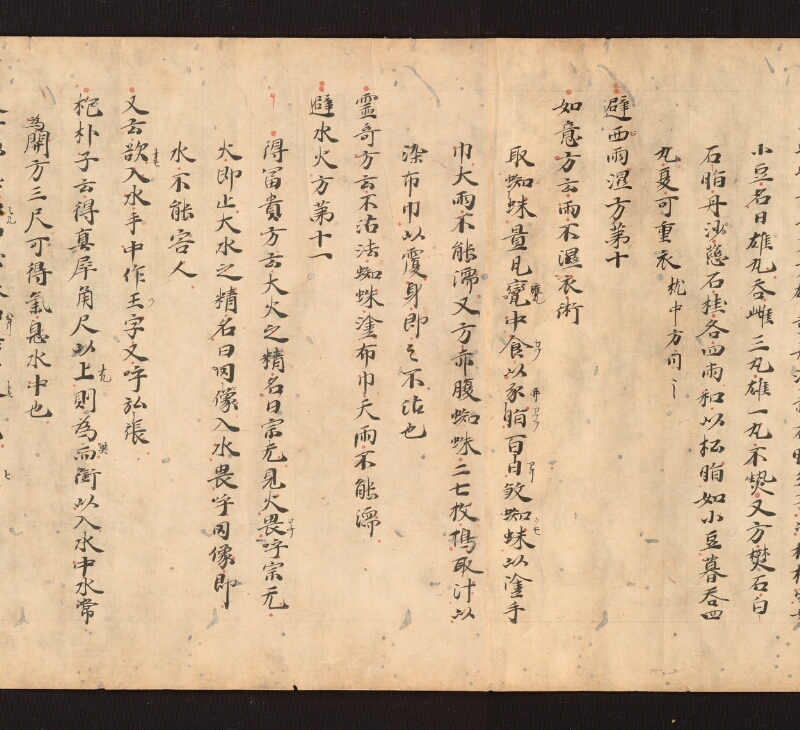 小豆名曰雄丸吞雌三丸雄一丸不熱又方樊石白
石脂丹沙慈石桂各四兩和以松脂如小豆暮吞四
丸夏可重衣 枕中方同之
避雨濕方第十
如意方云雨不濕衣術
取蜘蛛置凡甕中食以豕脂百日敘蜘蛛以塗手
巾大雨不能濡又方赤腹蜘蛛二七枚搗取汁以
染布巾以覆身即之不沾也
靈奇方云不沾法蜘蛛塗布巾天雨不能濡
避水火方第十一
得富貴方云大火之精名曰宗无見火畏呼宗无
火即止大水之精名曰罔像入水畏呼罔像即
水不能害人
又云欲入水手中作王字又呼弘張
枹朴子云得真犀角尺以上則為而銜以入水中水常
為開方三尺可得氣息水中也